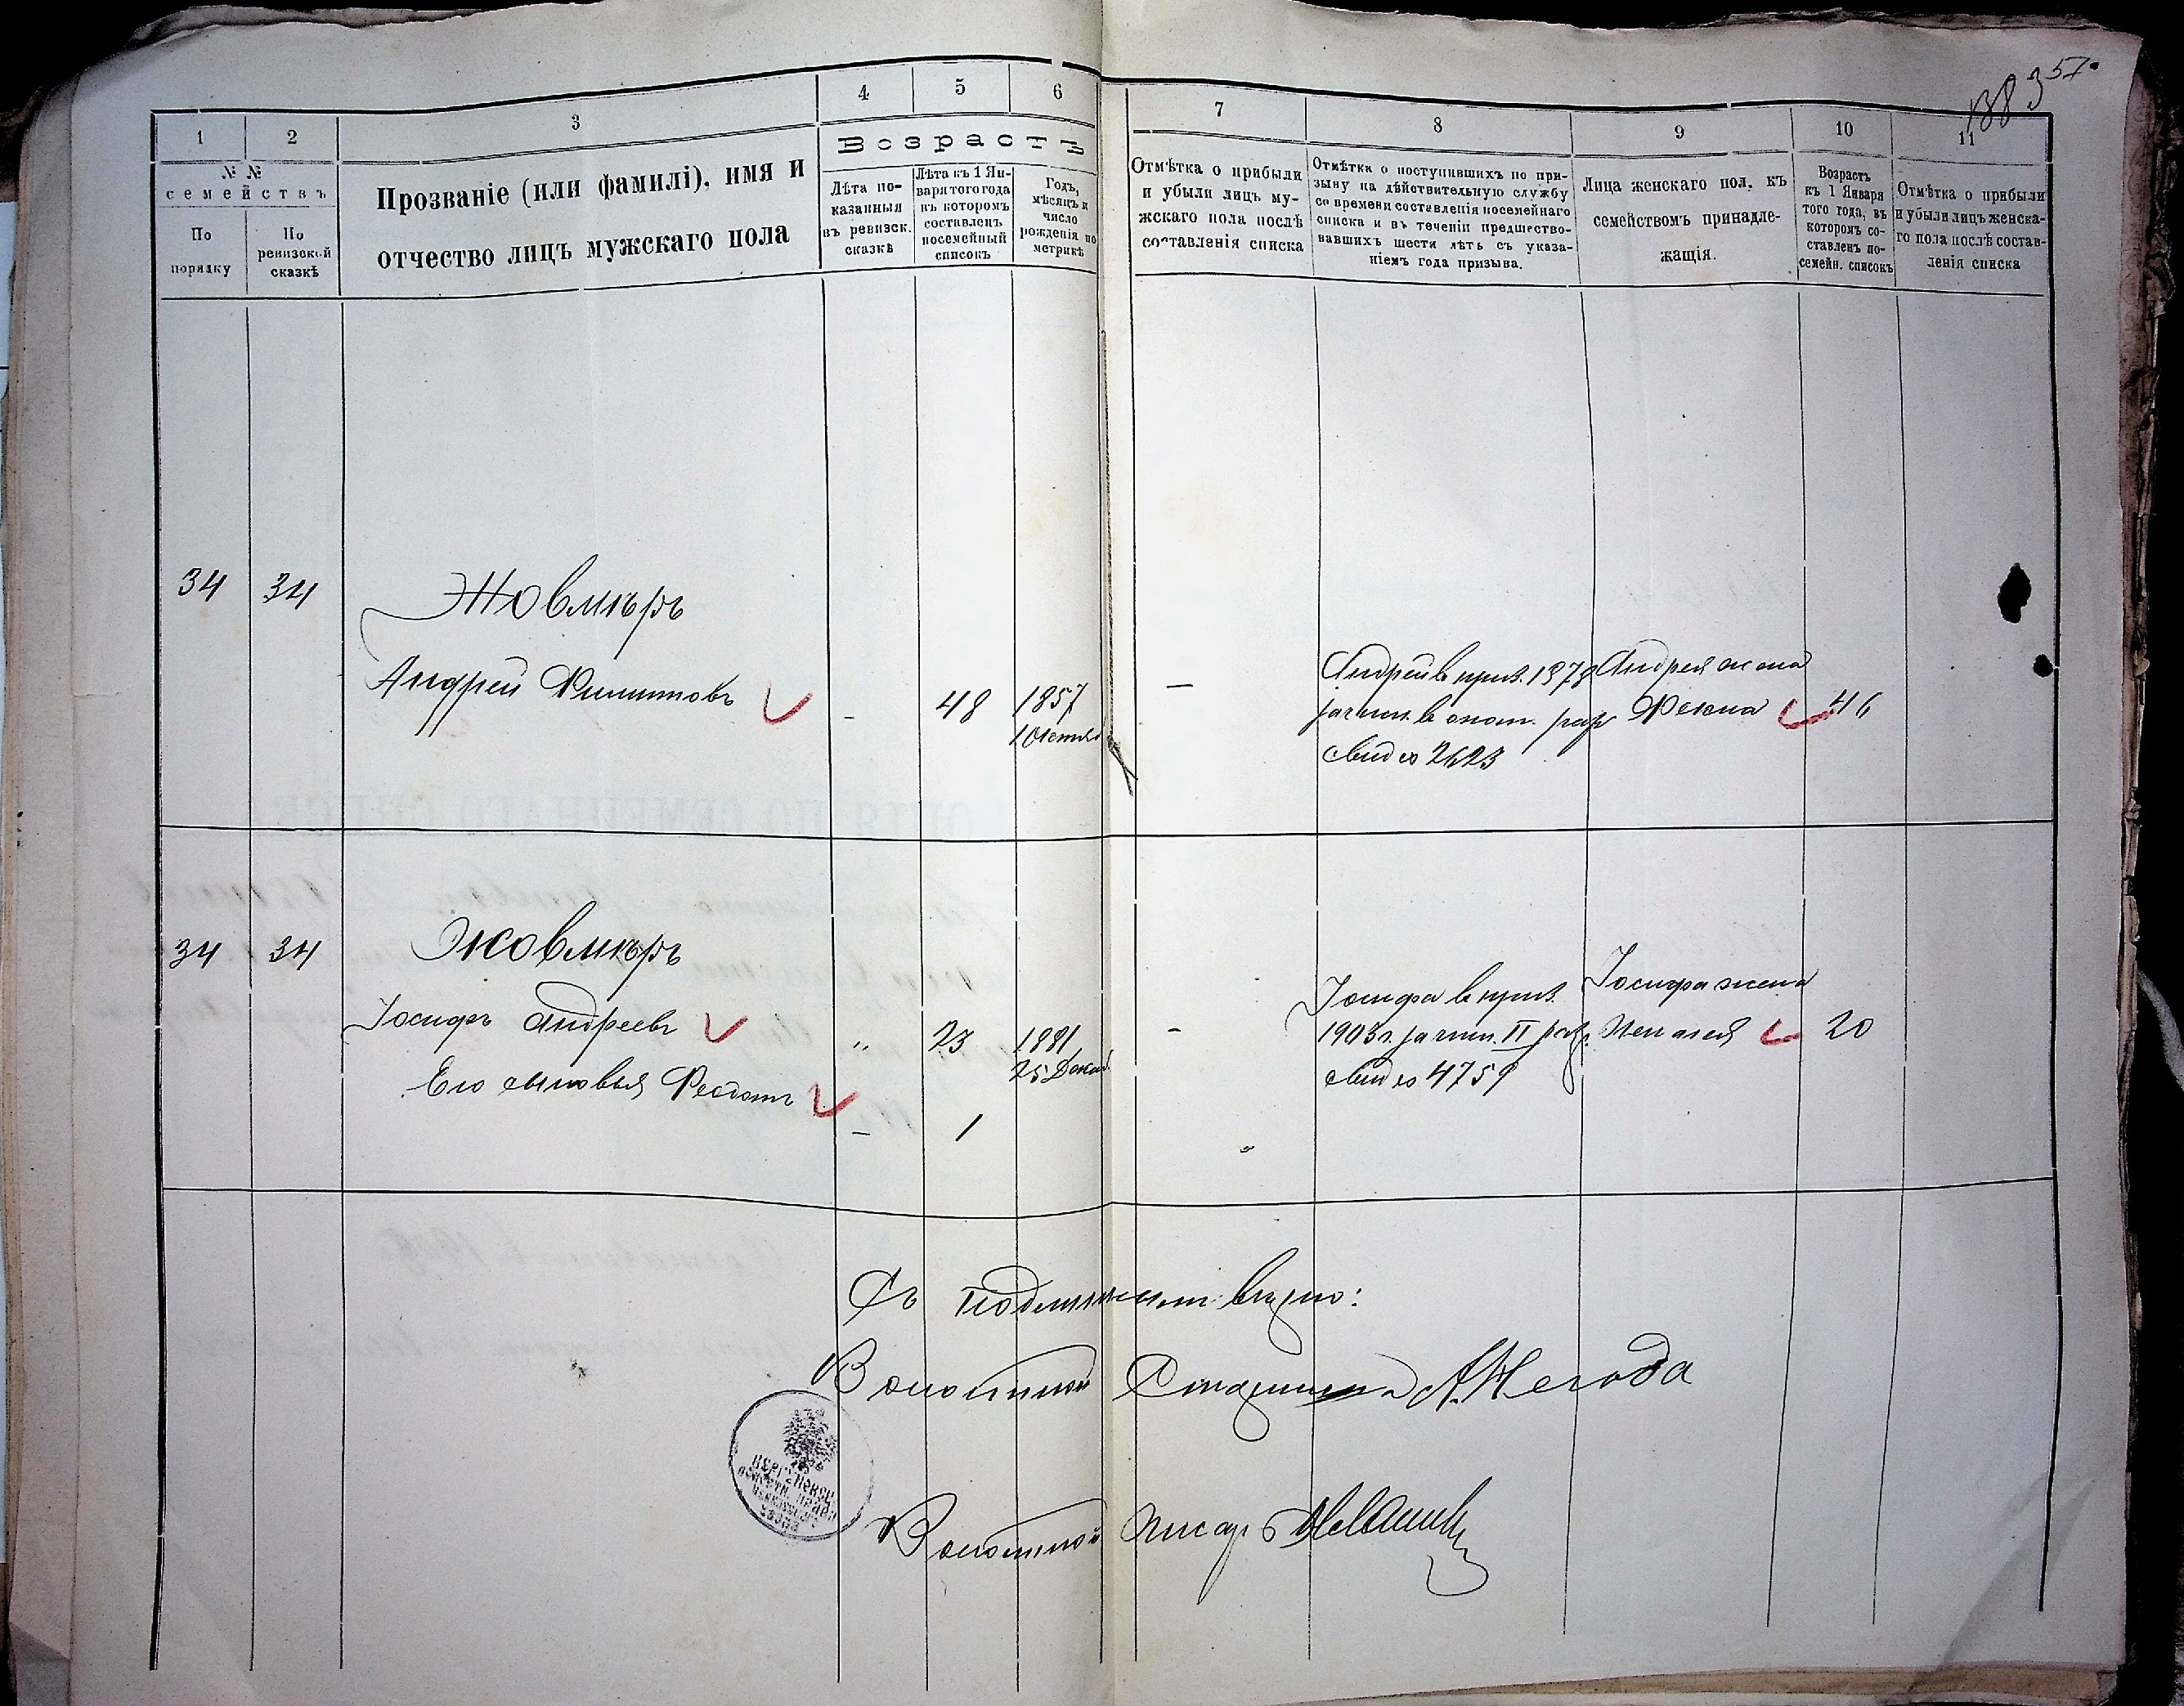 57.
1883
1
2
3
4
5
6
7
8
9
10
11
№ №
семействъ
По
порядку
По
ревизской
сказкѣ
Прозваніе (или фамилі), имя и
отчество лицъ мужскаго пола
Возрастъ
Лѣта по-
казанныя
въ ревизск.
сказкѣ
Лѣта къ 1 Ян-
варя того года
въ которомъ
составленъ
посемейный
списокъ
Годъ,
мѣсяцъ и
число
рожденія по
метрикѣ
Отмѣтка о прибыли
и убыли лицъ му-
жскаго пола послѣ
составленія списка
Отмѣтка о поступившихъ по при-
зыву на дѣйствительную службу
со времени составленія посемейнаго
списка и въ теченіи предшество-
вавшихъ шести лѣтъ съ указа-
ніемъ года призыва.
Лица женскаго пол. къ
семействомъ принадле-
жащія.
Возрастъ
къ 1 Января
того года, въ
которомъ со-
ставленъ по-
семейн. списокъ
Отмѣтка о прибыли
и убыли лицъ женска-
го пола послѣ состав-
ленія списка
34 34 Жовмиръ
Андрей Филиповъ - 48 1857
1 Октяб
—
Андрей в приз. 1878
зачис. в опол. раз
свид № 2623
Андрея жена
Фекла 46
34 34 Жовмиръ
Іосифъ Андреевъ " 23 1881
25 Декаб.
Его сыновья Феодотъ - 1
-
Іосифа в приз.
1903 г. зачис. II раз.
свид № 4759
Іосифа жена
20
"
Съ подлиннымъ вѣрно:
Волостной Старшина А. Негода
Волостной писарь